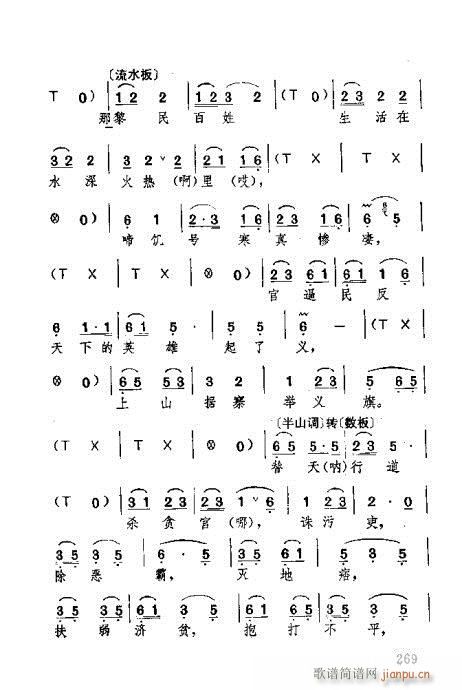 〔流水板〕
T 0) | 1 2 2 | 1 2 3 2 | (T 0) | 2 3 2 3
那黎民百姓 生活在
3 2 2 | 3 2 2 | 2 1 1 6 | (T X | T X
水深火热(啊)里(哎),
⊗ 0) | 6 1 | 2·3 1 6 | 2 3 1 | 6 5
啼饥号寒真惨凄,
(T X | T X | ⊗ 0) | 2 3 6 1 | 6 1 5
官逼民反
6 1·1 | 6 1 5 | 5 5 | 6 – | (T X
天下的英雄起了义,
⊗ 0) | 6 5 5 3 | 3 2 | 1 2 3 | 6 5 5
上山据寨举义旗。
〔半山调〕转〔数板〕
(T X | T X | ⊗ 0) | 6 5 5·5 | 5 2 2
替天(呐)行道
(T 0) | 3 1 2 3 | 2 3 1 | 2 3 | 2·0
杀贪官(哪), 诛污吏,
3 5 3 5 | 6·5 | 3 5 3 | 5 5
除恶霸, 灭地痞,
3 5 3 5 | 6 1 5 | 6 1 3 | 5 5
扶弱济贫, 抱打不平,
269
歌谱简谱网
jianpu.cn